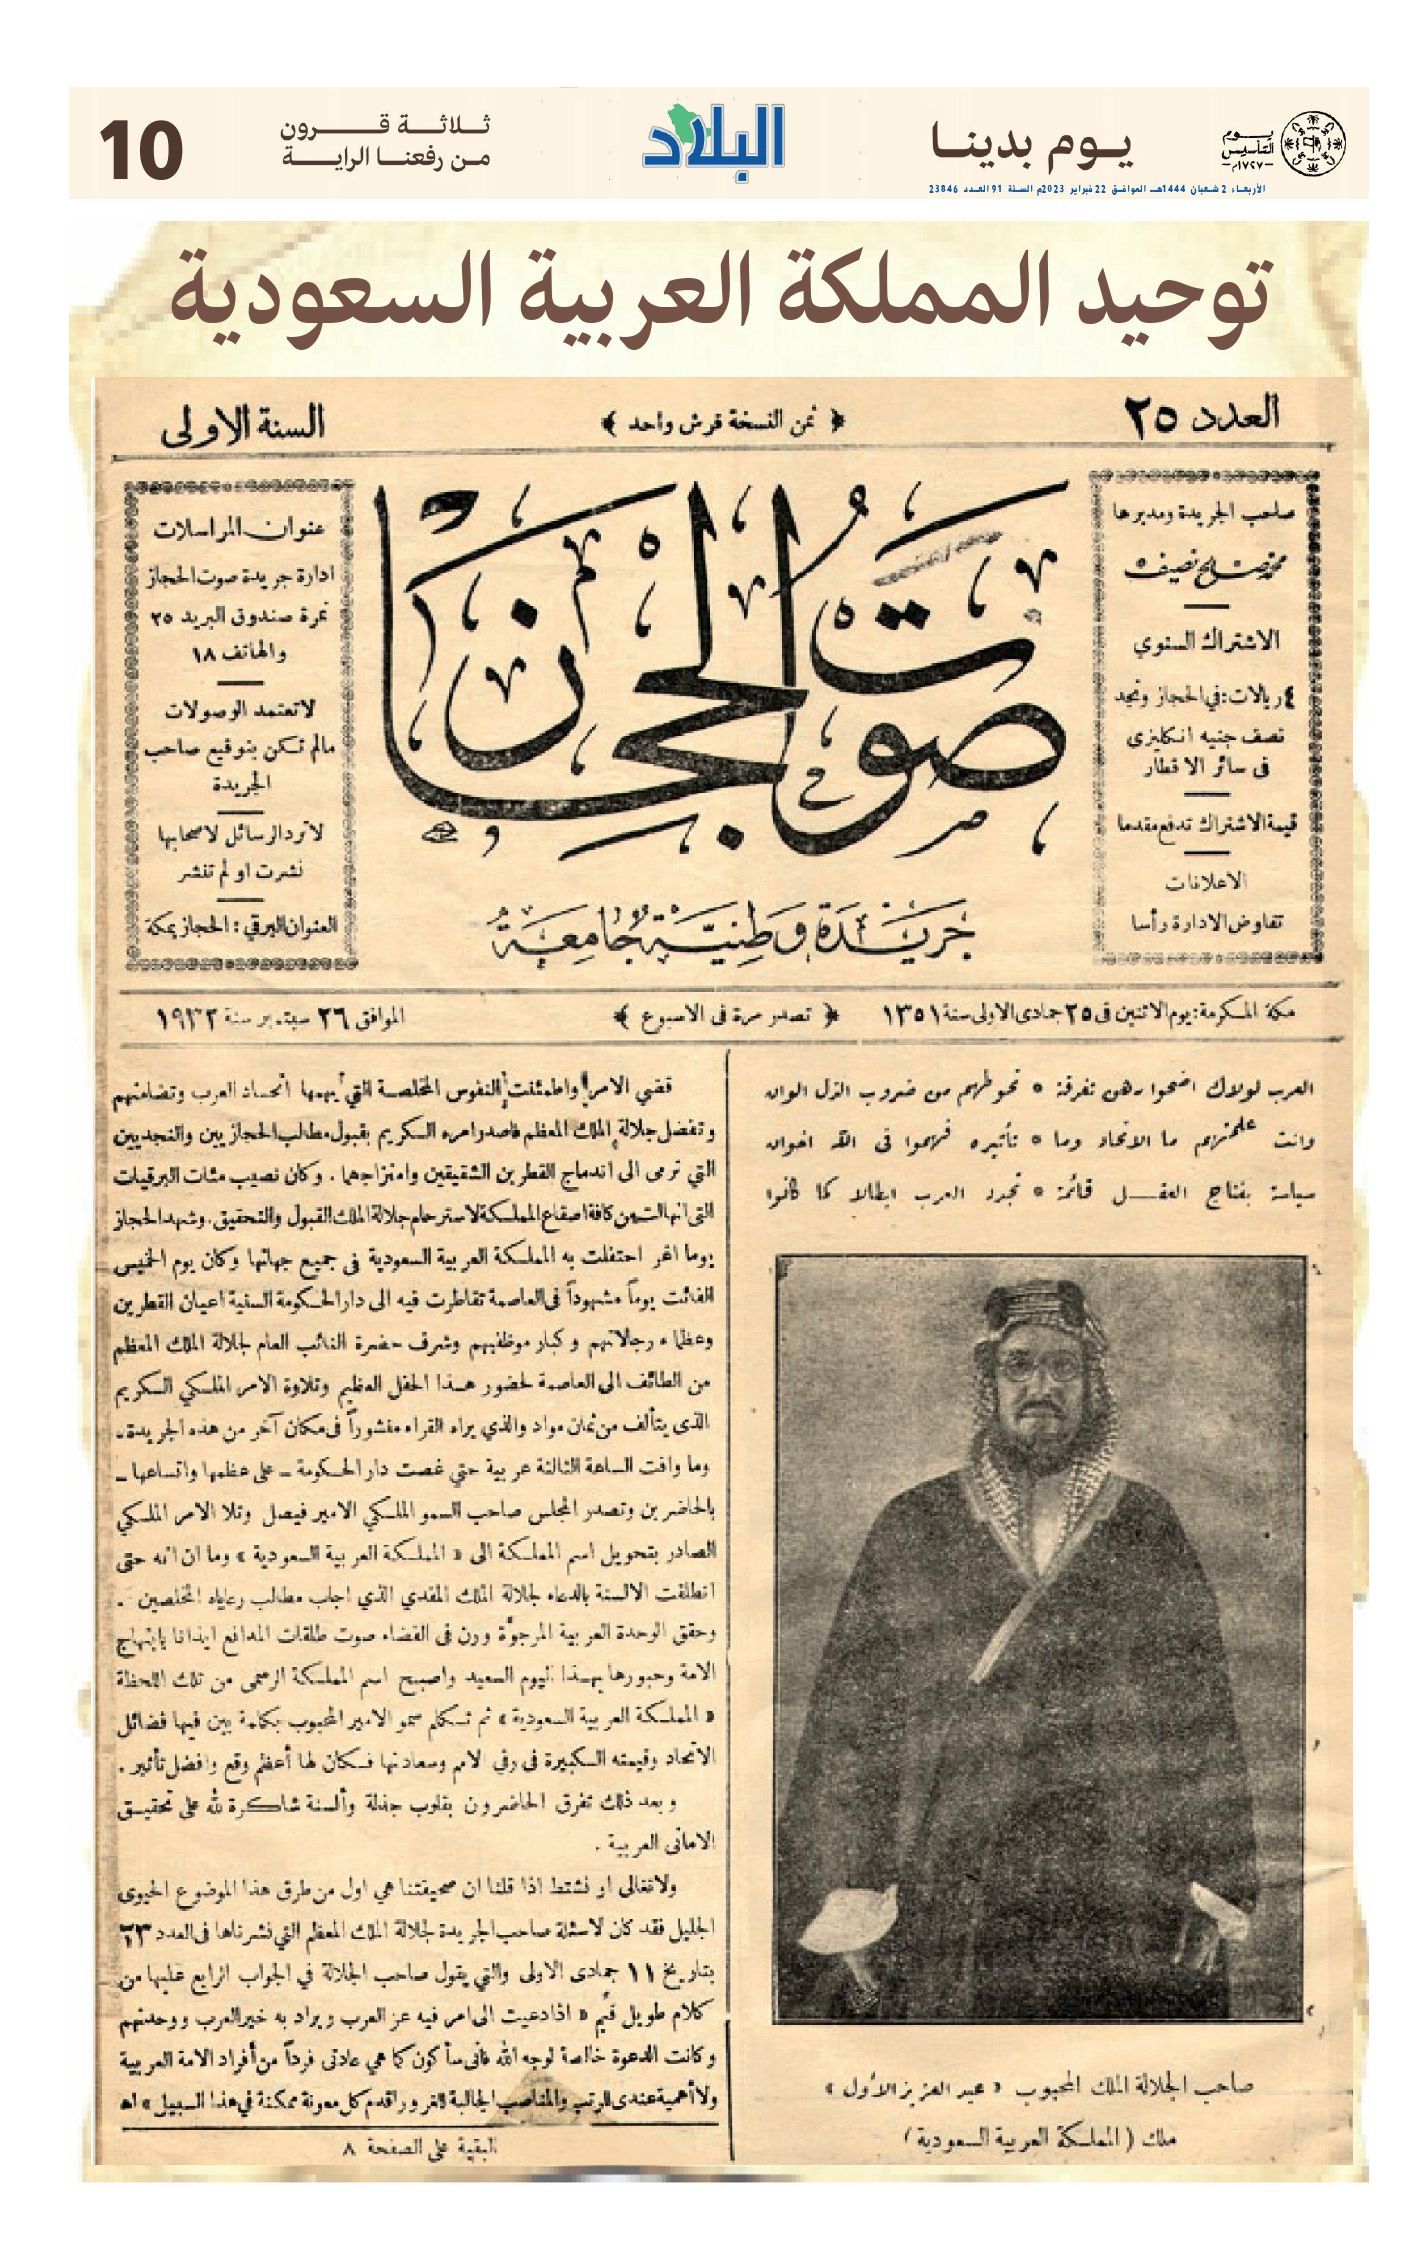 يوم التأسيس
١٧٢٧م
يوم بدينا
الأربعاء 2 شعبان 1444هـ الموافق 22 فبراير 2023م السنة 91 العدد 23846
البلاد
ثلاثة قرون
من رفعنا الراية
10
توحيد المملكة العربية السعودية
العدد ٢٥
﴿ ثمن النسخة قرش واحد ﴾
السنة الاولى
صاحب الجريدة ومديرها
محمد صالح نصيف
الاشتراك السنوي
٤ ريالات: في الحجاز ونجد
نصف جنيه انكليزى
فى سائر الاقطار
قيمة الاشتراك تدفع مقدما
الاعلانات
تفاوض الادارة رأسا
صوت الحجاز
جريدة وطنية جامعة
عنوان المراسلات
ادارة جريدة صوت الحجاز
نمرة صندوق البريد ٢٥
والهاتف ١٨
لا تعتمد الوصولات
مالم تكن بتوقيع صاحب
الجريدة
لا ترد الرسائل لاصحابها
نشرت او لم تنشر
العنوان البرقي: الحجاز بمكة
مكة المكرمة: يوم الاثنين فى ٢٥ جمادى الاولى سنة ١٣٥١
﴿ تصدر مرة فى الاسبوع ﴾
الموافق ٢٦ سبتمبر سنة ١٩٣٢
العرب لولاك اضحوا رهن تفرقة * نحوطهم من ضروب الذل الوان
وانت علمتهم ما الاتحاد وما * تأثيره فهموا فى الله اخوان
سياسة بفتاح العقل قائمة * تجدد العرب ابطالا كما كانوا
صاحب الجلالة الملك المحبوب « عبد العزيز الأول »
ملك ( المملكة العربية السعودية )
قضي الامر واطمئنت النفوس المخلصة التي يهمها اتحساد العرب وتضامنهم
وتفضل جلالة الملك المعظم فاصدر امره الكريم بقبول مطالب الحجازيين والنجديين
التي ترمى الى اندماج القطرين الشقيقين وامتزاجهما . وكان نصيب مئات البرقيات
التى انهالت من كافة اصقاع المملكة لاسترحام جلالة الملك القبول والتحقيق . وشهد الحجاز
يوما اغر احتفلت به المملكة العربية السعودية فى جميع جهاتها وكان يوم الخميس
الفائت يوماً مشهوداً فى العاصمة تقاطرت فيه الى دار الحكومة السنية اعيان القطرين
وعظماء رجالاتهم وكبار موظفيهم وشرف حضرة النائب العام لجلالة الملك المعظم
من الطائف الى العاصمة لحضور هذا الحفل العظيم وتلاوة الامر الملكي الكريم
الذى يتألف من ثمان مواد والذي يراه القراء منشوراً فى مكان آخر من هذه الجريدة .
وما وافت الساعة الثالثة عربية حتي غصت دار الحكومة ـ على عظمها واتساعها ـ
بالحاضرين وتصدر المجلس صاحب السمو الملكي الامير فيصل وتلا الامر الملكي
الصادر بتحويل اسم المملكة الى « المملكة العربية السعودية » وما ان اتمه حتى
انطلقت الالسنة بالدعاء لجلالة الملك المفدي الذي اجاب مطالب رعاياه المخلصين .
وحقق الوحدة العربية المرجوّة ورن فى الفضاء صوت طلقات المدافع ايذانا بابتهاج
الامة وحبورها بهذا اليوم السعيد واصبح اسم المملكة الرسمى من تلك اللحظة
« المملكة العربية السعودية » ثم تكلم سمو الامير المحبوب بكلمة بين فيها فضائل
الاتحاد وقيمته الكبيرة فى رقي الامم وسعادتها فكان لها أعظم وقع وافضل تأثير .
وبعد ذلك تفرق الحاضرون بقلوب جذلة وألسنة شاكرة لله على تحقيق
الامانى العربية .
ولا نغالى او نشتط اذا قلنا ان صحيفتنا هي اول من طرق هذا الموضوع الحيوى
الجليل فقد كان لاسئلة صاحب الجريدة لجلالة الملك المعظم التي نشرناها فى العدد ٢٣
بتاريخ ١١ جمادى الاولى والتي يقول صاحب الجلالة في الجواب الرابع عليها من
كلام طويل قيم « اذا دعيت الى امر فيه عز العرب ويراد به خير العرب ووحدتهم
وكانت الدعوة خالصة لوجه الله فانى سأكون كما هي عادتى فرداً من أفراد الامة العربية
ولا أهمية عندى للرتب والمناصب الجالبة للغرور اقدم كل معونة ممكنة في هذا السبيل » اه
البقية على الصفحة ٨